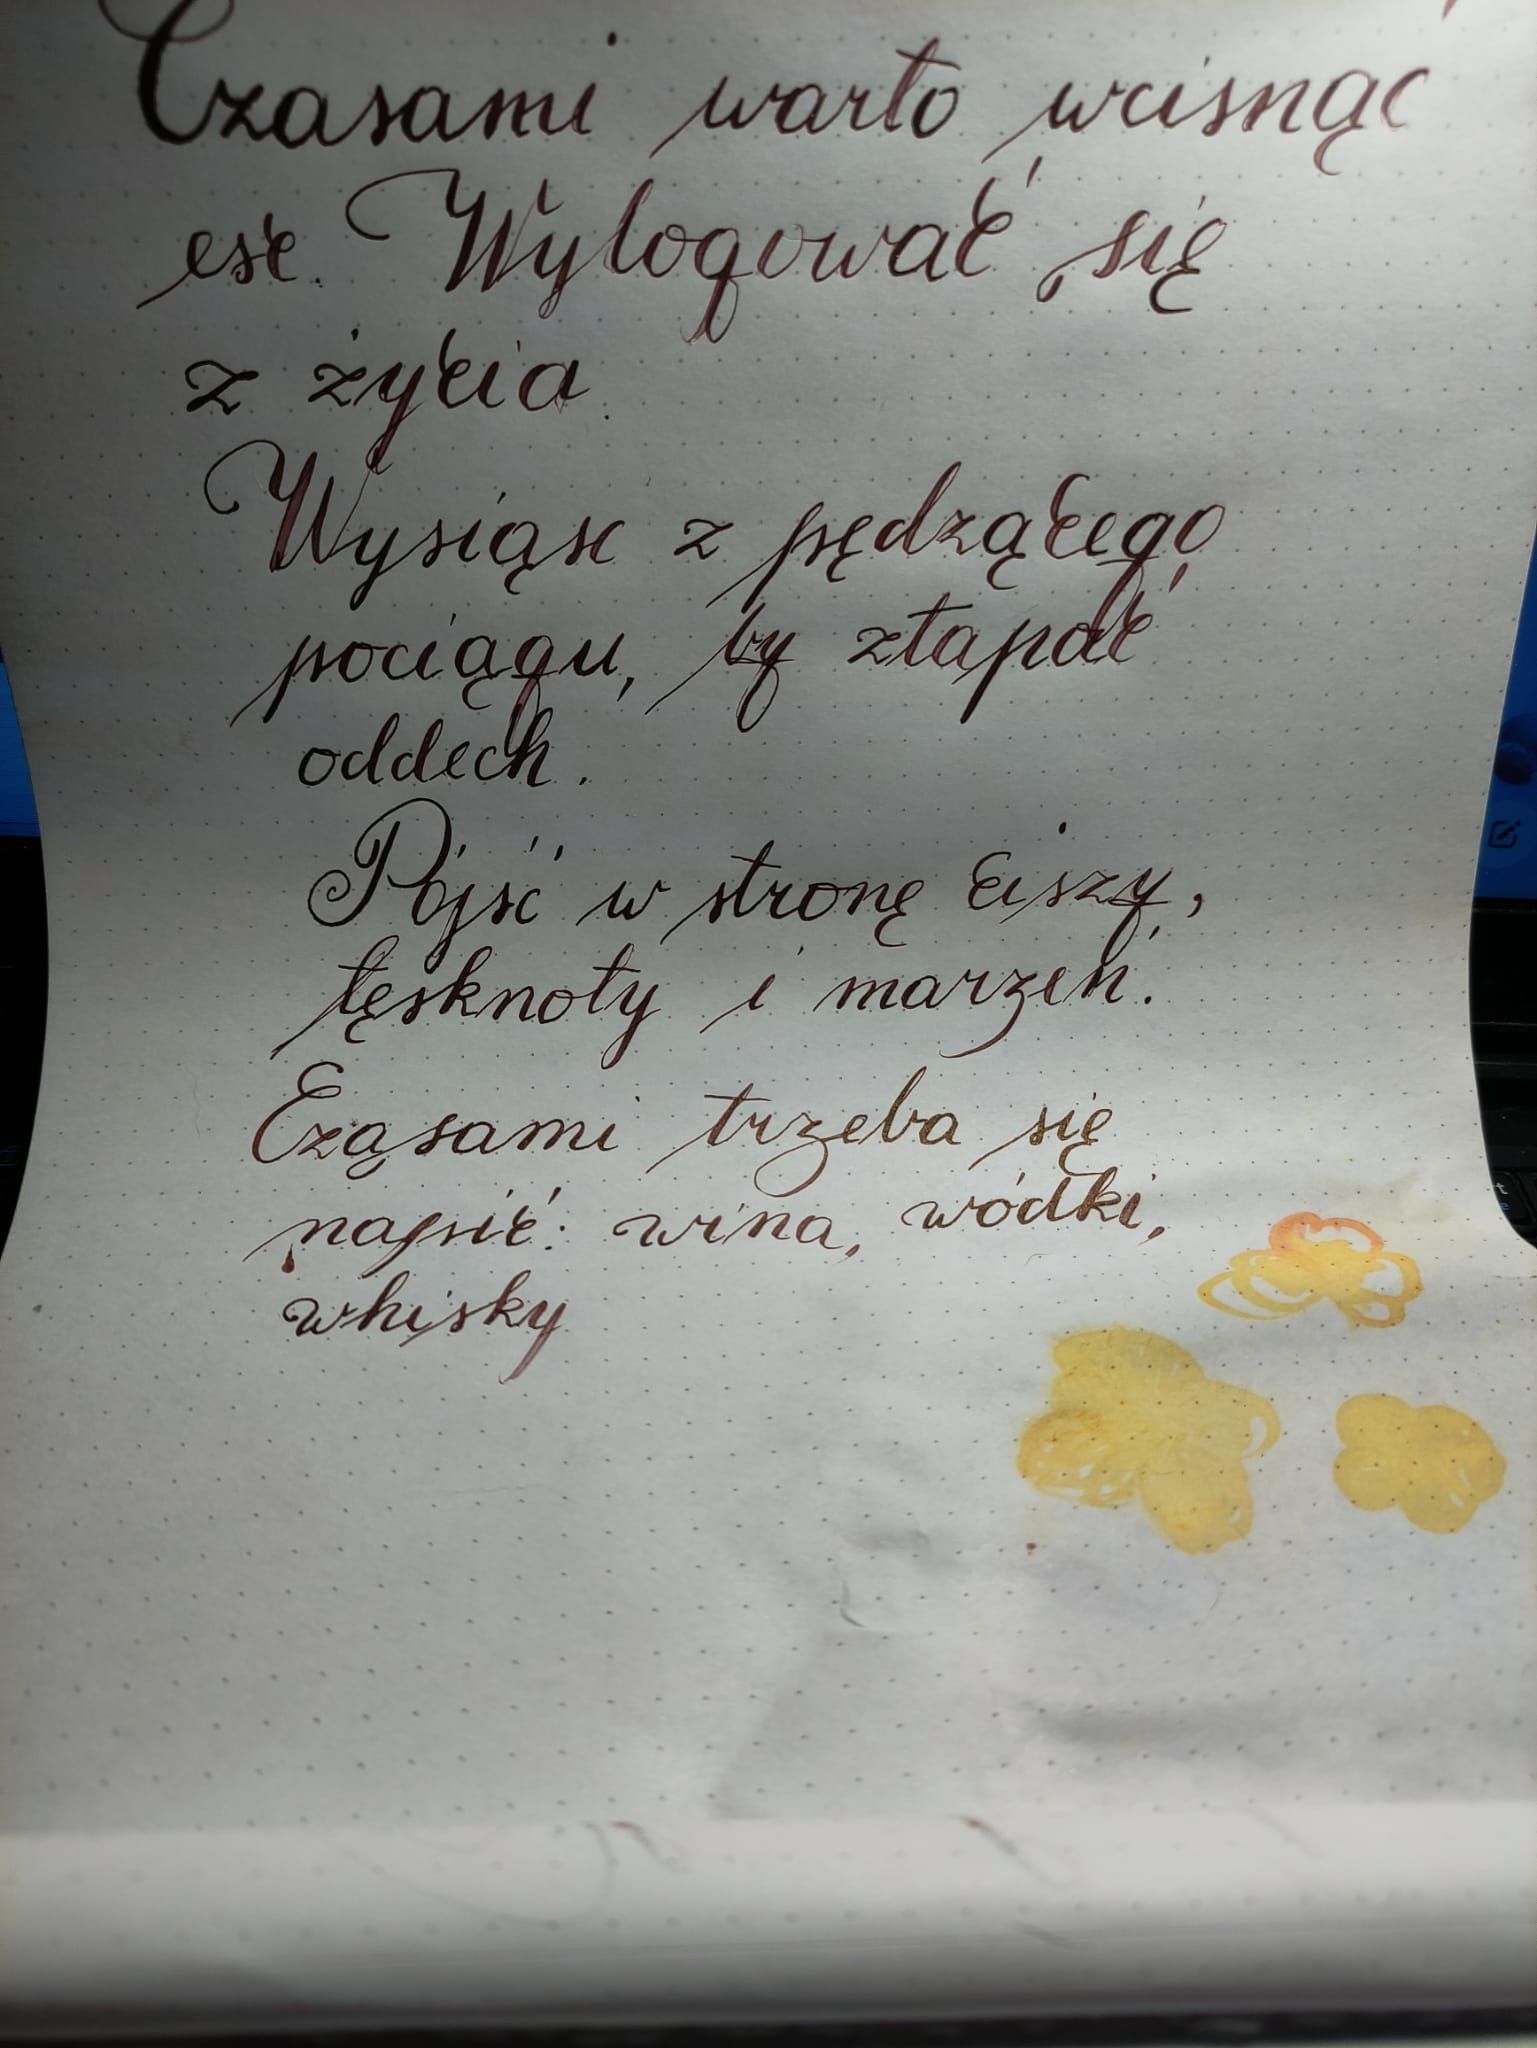 Czasami warto wcisnąć
esc. Wylogować się
z życia.
Wysiąść z pędzącego
pociągu, by złapać
oddech.
Pójść w stronę ciszy,
tęsknoty i marzeń.
Czasami trzeba się
napić: wina, wódki,
whisky